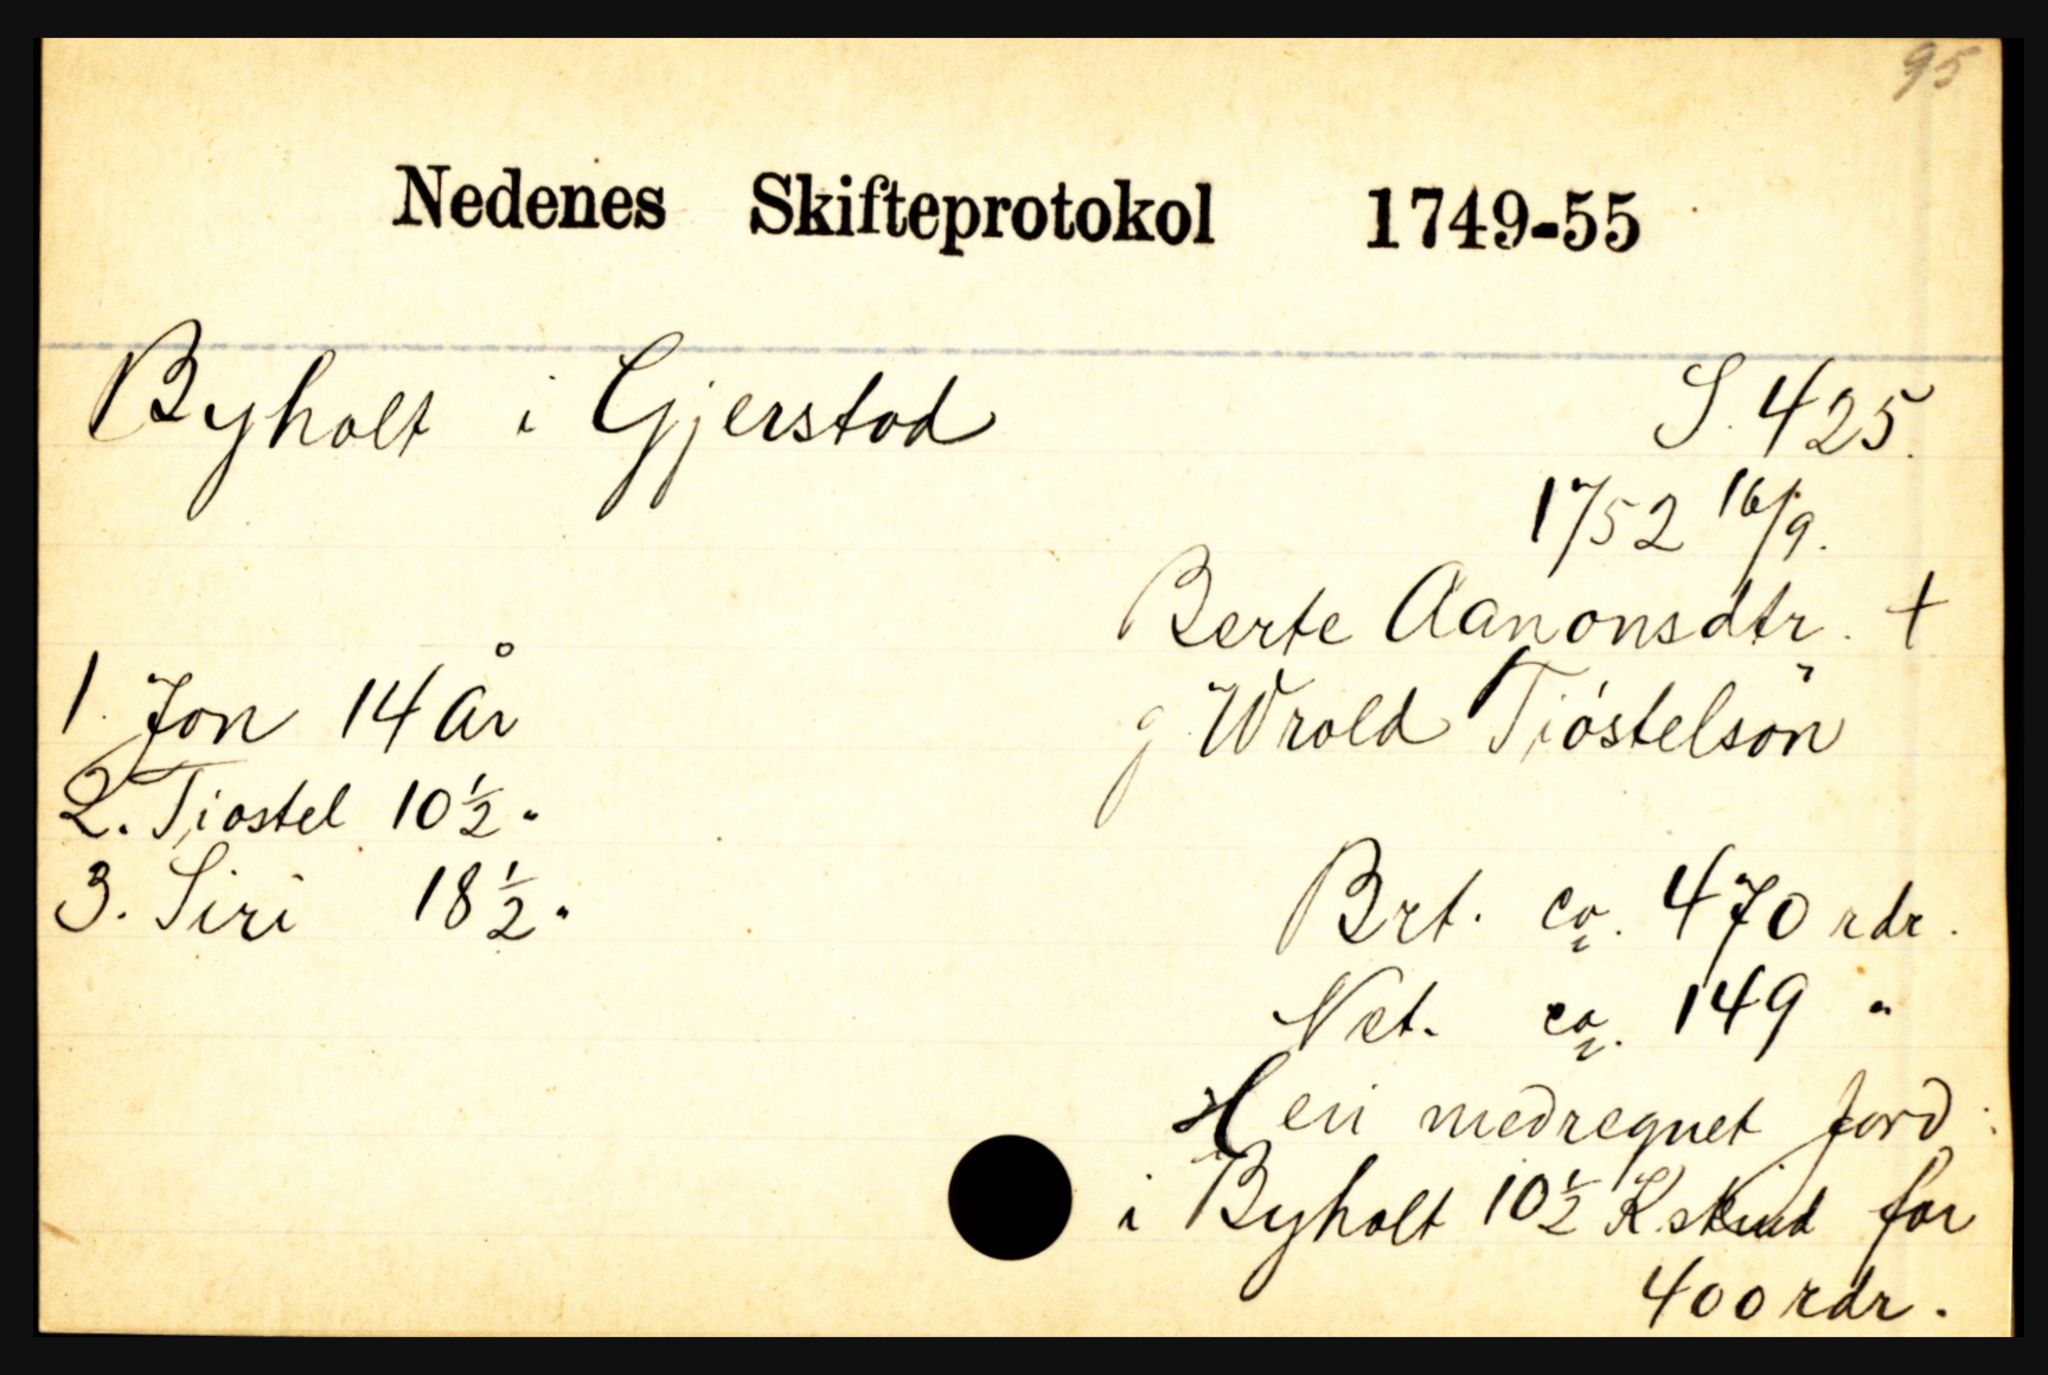 95
Nedenes Skifteprotokol 1749-55
Byholt i Gjerstad
S. 425.
1752 16/9.
Berte Aanonsdtr. +
g. Wrold Tióstelsön
1. Jon 14 år
2. Tiostel 10 1/2 "
3. Siri 18 1/2 "
Brt. ca. 470 rdr.
Net. ca. 149 "
Heri medregnet jord:
i Byholt 10 1/2 K.skind for
400 rdr.